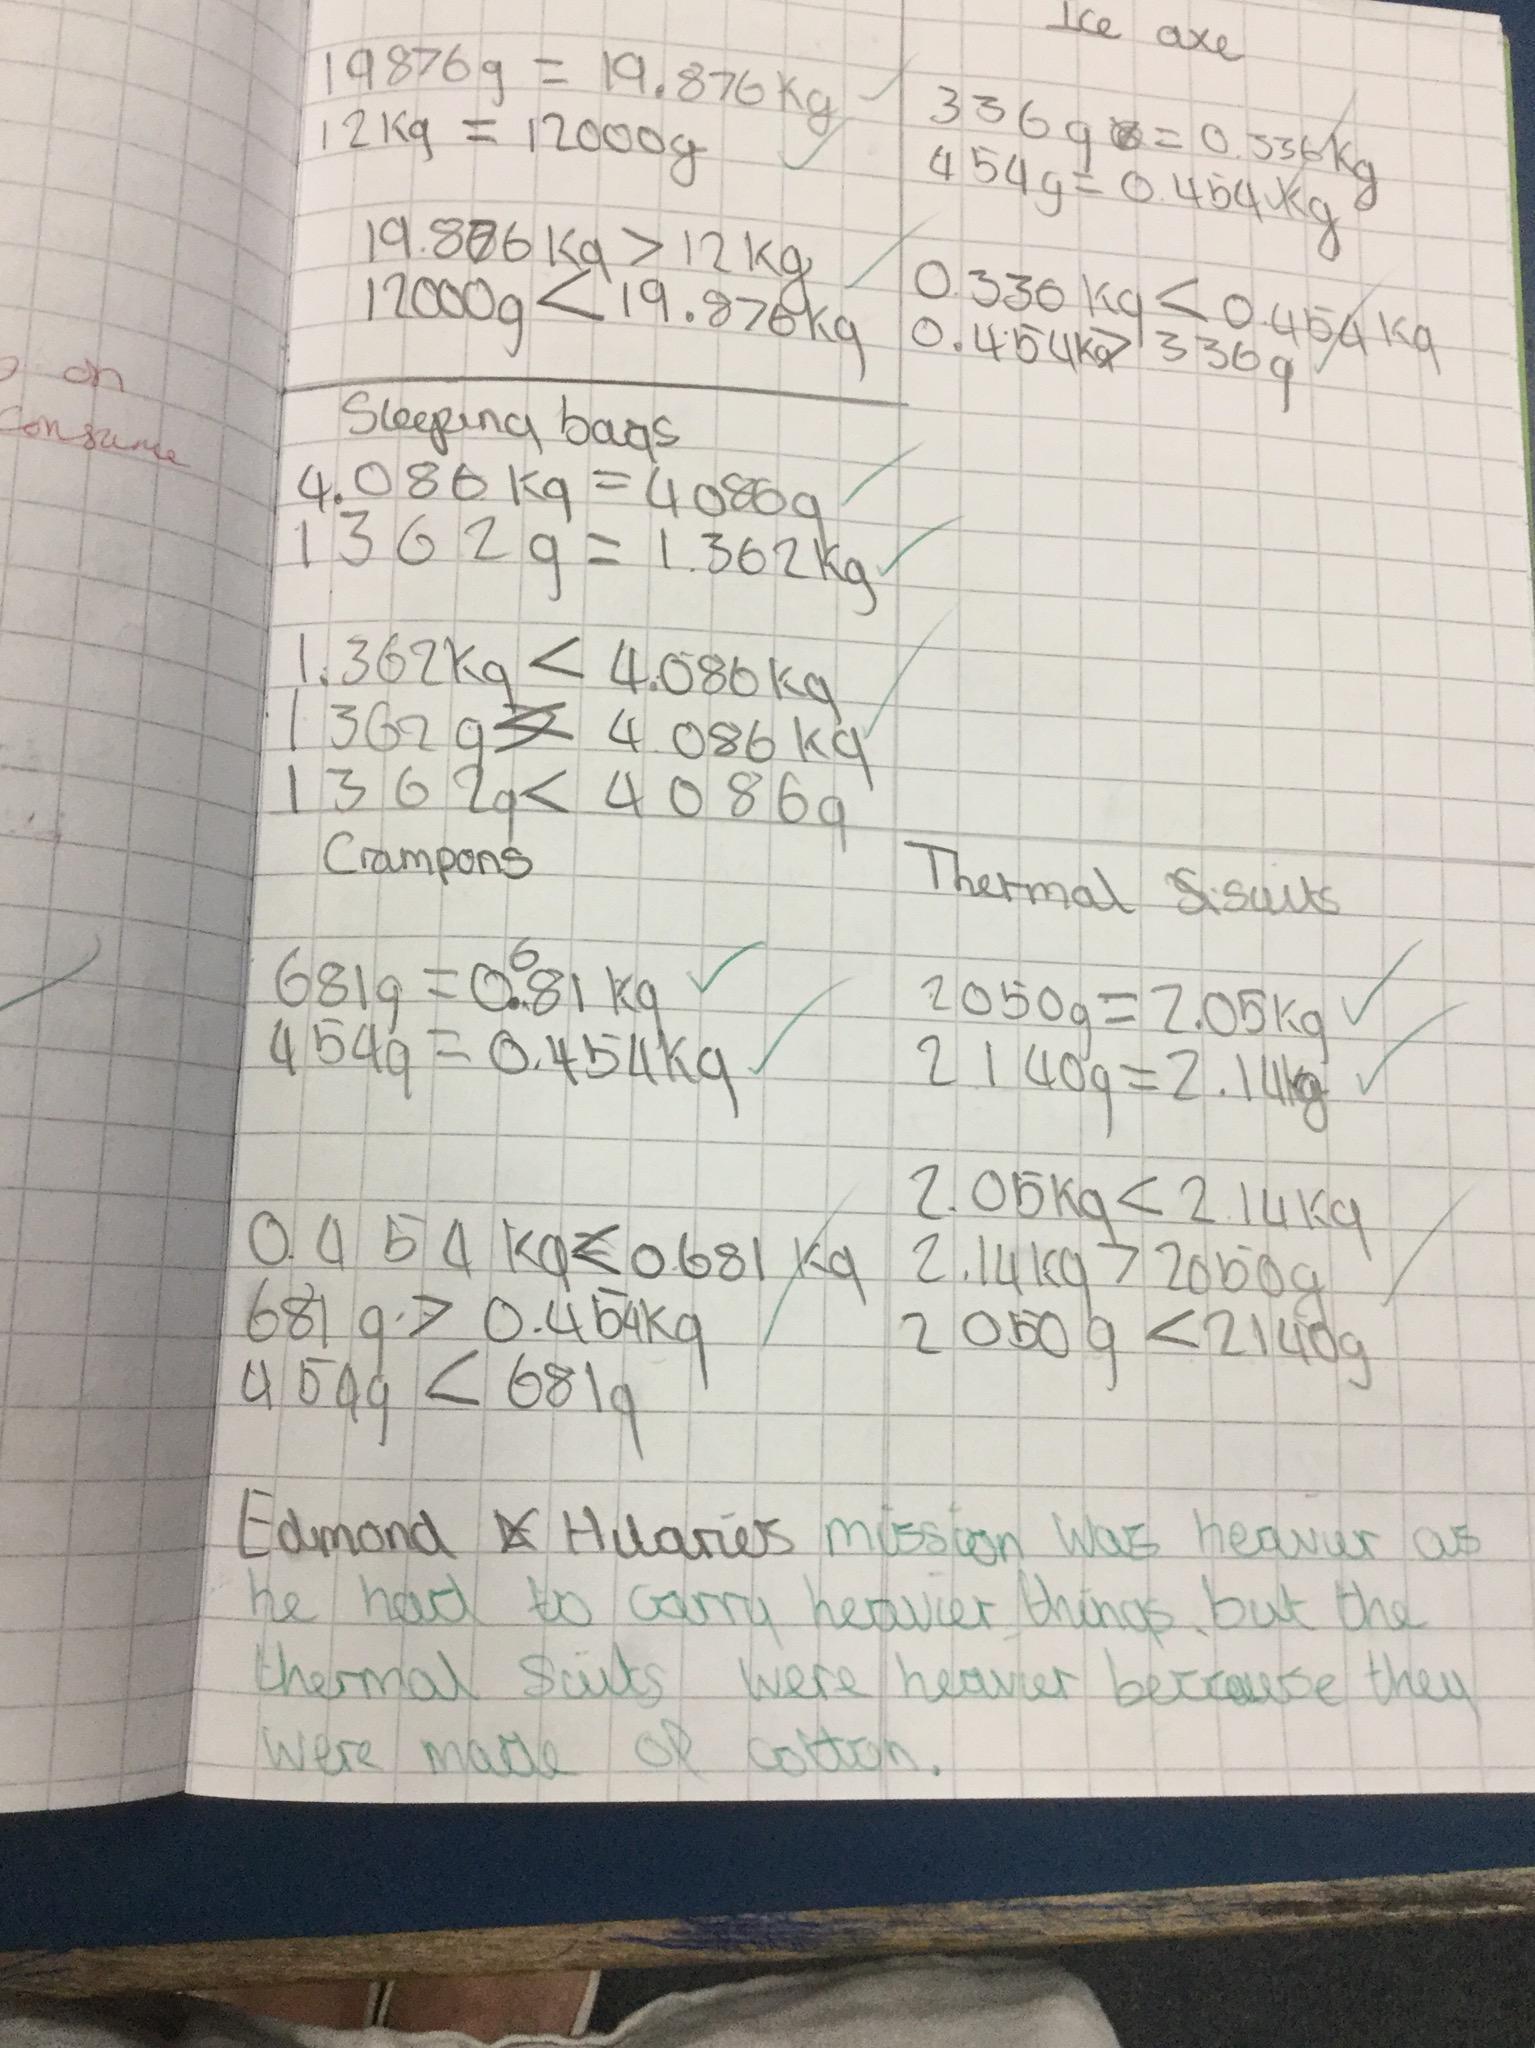 on
consume
19876g = 19.876Kg
12Kg = 12000g
19.876Kg > 12Kg
12000g < 19.876Kg
Ice axe
336g = 0.336Kg
454g = 0.454Kg
0.336Kg < 0.454Kg
0.454Kg > 336g
Sleeping bags
4.086Kg = 4086g
1362g = 1.362Kg
1.362Kg < 4.086Kg
1362g < 4.086Kg
1362g < 4086g
Crampons
681g = 0.681Kg
454g = 0.454Kg
0.454Kg < 0.681Kg
681g > 0.454Kg
454g < 681g
Thermal Suits
2050g = 2.05Kg
2140g = 2.14Kg
2.05Kg < 2.14Kg
2.14Kg > 2050g
2050g < 2140g
Edmond Hilaries mission was heavier as
he had to carry heavier things, but the
thermal suits were heavier because they
were made of cotton.